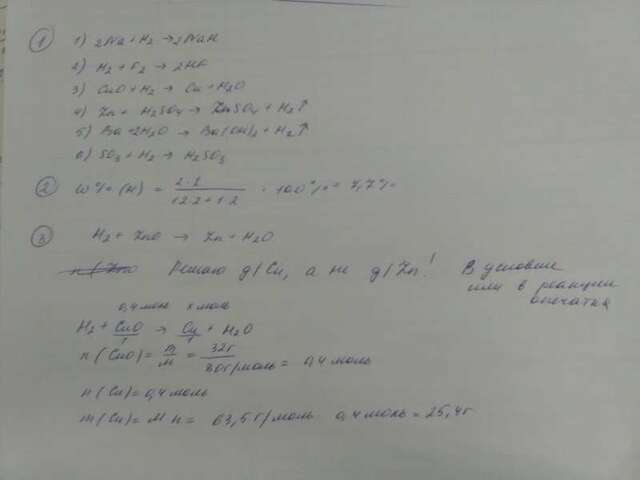 1) 1) 2Na + H2 → 2NaH
2) H2 + F2 → 2HF
3) CuO + H2 → Cu + H2O
4) Zn + H2SO4 → ZnSO4 + H2↑
5) Ba + 2H2O → Ba(OH)2 + H2↑
6) SO3 + H2 → H2SO3
2) W% (H) = 2·1 / 12·2+1·2 · 100% = 7,7%
3) H2 + ZnO → Zn + H2O
Решаю д/Cu, а не д/Zn! В условии
или в реакции
опечатка
0,4 моль x моль
H2 + CuO → Cu + H2O
n(CuO) = m/M = 32г / 80г/моль = 0,4 моль
n(Cu) = 0,4 моль
m(Cu) = M·n = 63,5 г/моль · 0,4 моль = 25,4г